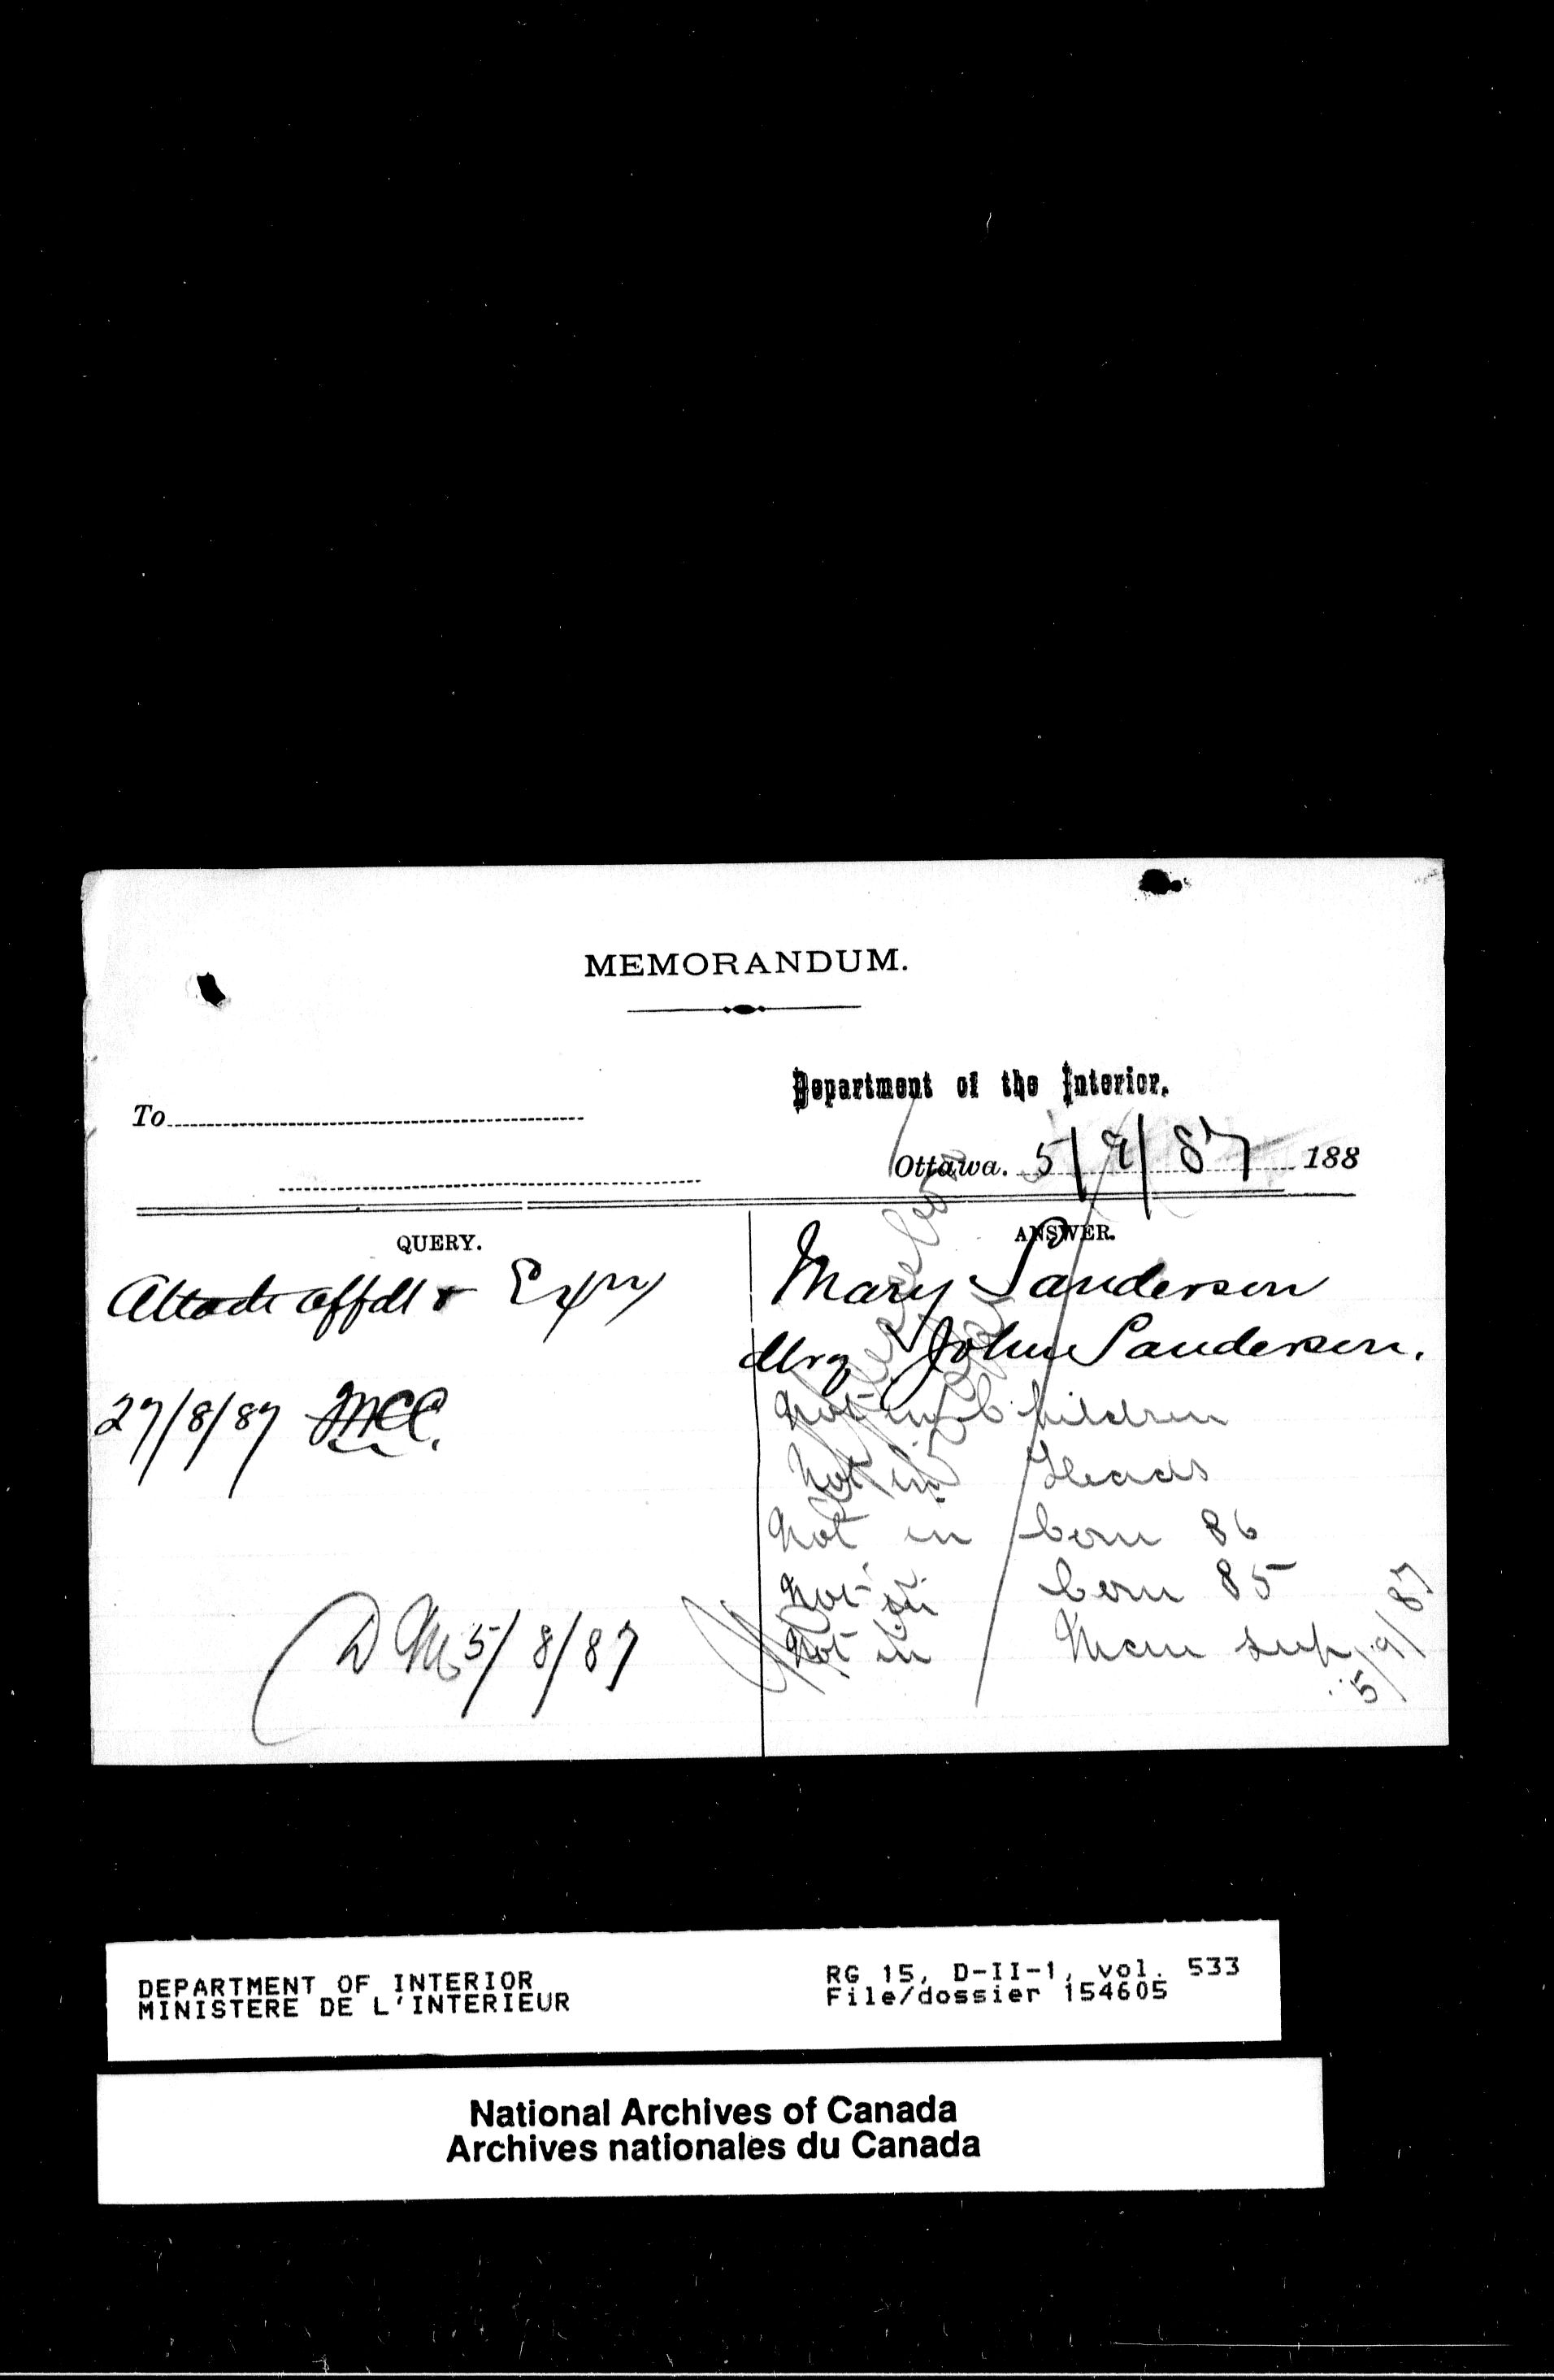 MEMORANDUM.
Department of the Interior.
To
Ottawa. 5/9/87 188
QUERY.
ANSWER.
Attach affdt &
27/8/87 MCC.
D M 5/8/87
Mary Sanderson
John Sanderson.
Not in Children
Not in Heads
Not in born 86
Not in born 85
Not in Man sup
5/9/87
DEPARTMENT OF INTERIOR
MINISTERE DE L'INTERIEUR
RG 15, D-II-1, vol. 533
File/dossier 154605
National Archives of Canada
Archives nationales du Canada